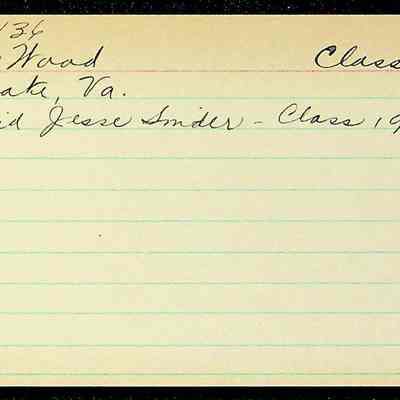 136
Wood Class
oake, Va.
id Jesse Snider - Class 19